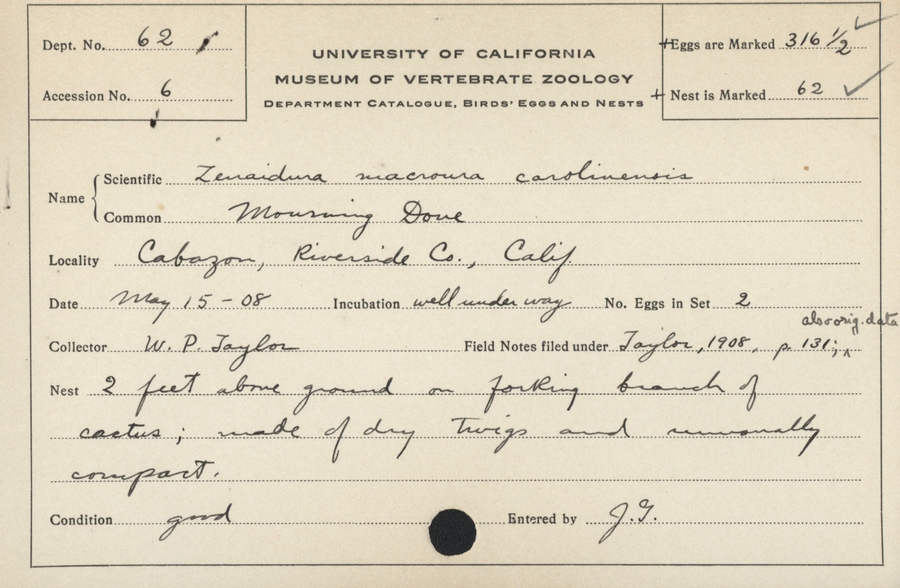 Dept. No. 62
Accession No. 6
UNIVERSITY OF CALIFORNIA
MUSEUM OF VERTEBRATE ZOOLOGY
DEPARTMENT CATALOGUE, BIRDS' EGGS AND NESTS
+Eggs are Marked 316 1/2 ✓
+ Nest is Marked 62 ✓
Name { Scientific Zenaidura macroura carolinensis
Common Mourning Dove
Locality Cabazon, Riverside Co., Calif
Date May 15-08 Incubation well under way No. Eggs in Set 2
also orig. data
Collector W. P. Taylor Field Notes filed under Taylor, 1908, p. 131; ^
Nest 2 feet above ground on forking branch of
cactus; made of dry twigs and unusually
compact.
Condition good Entered by J.G.